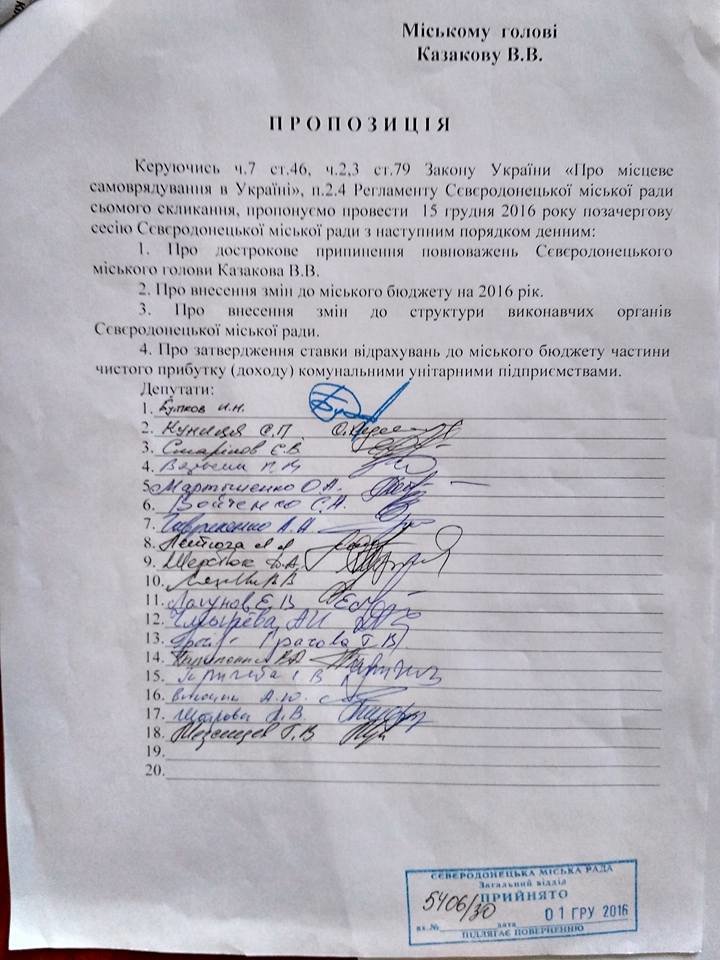 Міському голові
Казакову В.В.
ПРОПОЗИЦІЯ
Керуючись ч.7 ст.46, ч.2,3 ст.79 Закону України «Про місцеве
самоврядування в Україні», п.2.4 Регламенту Сєвєродонецької міської ради
сьомого скликання, пропонуємо провести 15 грудня 2016 року позачергову
сесію Сєвєродонецької міської ради з наступним порядком денним:
1. Про дострокове припинення повноважень Сєвєродонецького
міського голови Казакова В.В.
2. Про внесення змін до міського бюджету на 2016 рік.
3. Про внесення змін до структури виконавчих органів
Сєвєродонецької міської ради.
4. Про затвердження ставки відрахувань до міського бюджету частини
чистого прибутку (доходу) комунальними унітарними підприємствами.
Депутати:
1. Бутков И.Н.
2. Куница С.П.
3. Смарілов Є.В
4.
5. Мартыненко О.А.
6. Войченко С.А.
7. Гавриленко А.А
8.
9. Шерстюк В.А.
10. В.В
11. Лагунов Е.В
12. Чмырёва А.И
13. Грачова Г.В.
14.
15.
16. А.Ю.
17. В.
18. Г.В
19.
20.
СЄВЄРОДОНЕЦЬКА МІСЬКА РАДА
Загальний відділ
ПРИЙНЯТО
5406/30
вх.№ дата 01 ГРУ 2016
ПІДЛЯГАЄ ПОВЕРНЕННЮ